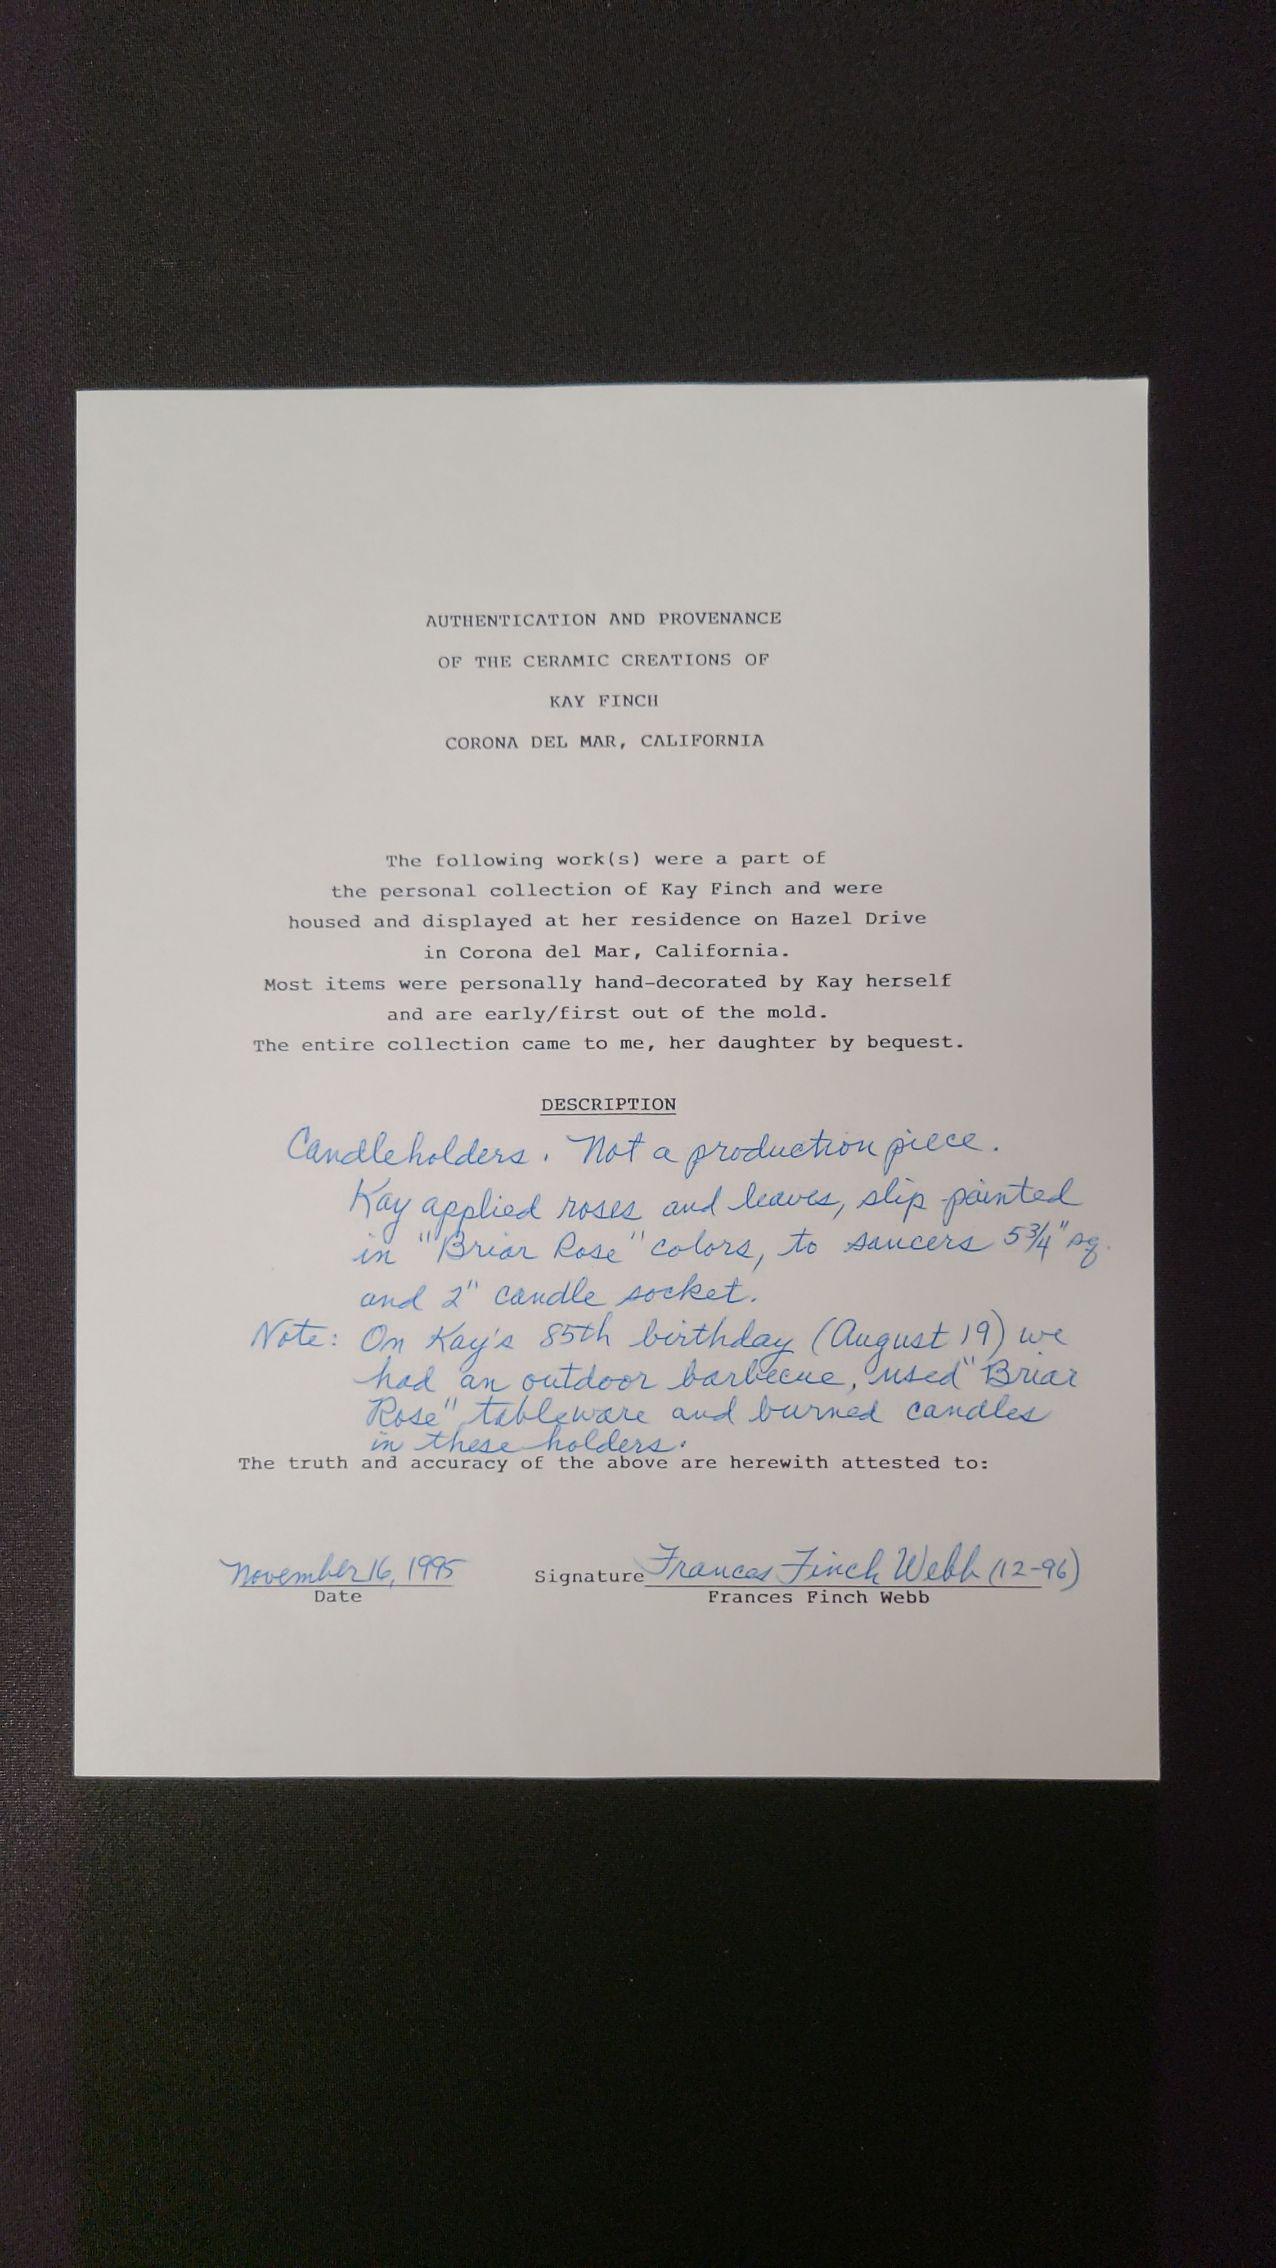 AUTHENTICATION AND PROVENANCE
OF THE CERAMIC CREATIONS OF
KAY FINCH
CORONA DEL MAR, CALIFORNIA
The following work(s) were a part of
the personal collection of Kay Finch and were
housed and displayed at her residence on Hazel Drive
in Corona del Mar, California.
Most items were personally hand-decorated by Kay herself
and are early/first out of the mold.
The entire collection came to me, her daughter by bequest.
DESCRIPTION
Candleholders. Not a production piece.
Kay applied roses and leaves, slip-painted
in "Briar Rose" colors, to saucers 5 3/4" sq.
and 2" candle socket.
Note: On Kay's 85th birthday (August 19) we
had an outdoor barbecue, used "Briar
Rose" tableware and burned candles
in these holders.
The truth and accuracy of the above are herewith attested to:
November 16, 1995 Signature Frances Finch Webb (12-96)
Date Frances Finch Webb